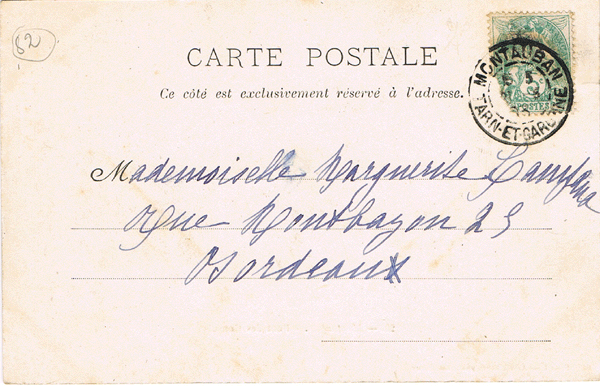 52
CARTE POSTALE
MONTAUBAN
TARN-ET-GARONNE
POSTES
Ce côté est exclusivement réservé à l'adresse.
Mademoiselle Marguerite
Rue Montbazon 25
Bordeaux